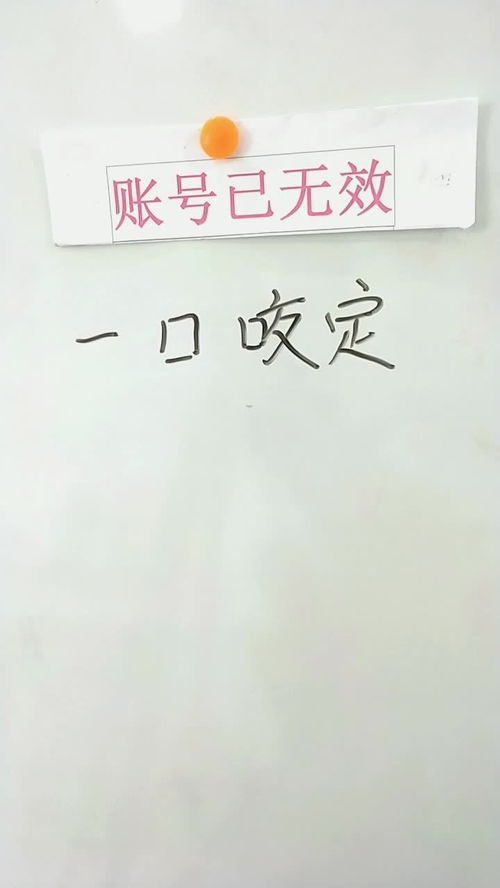 账号已无效
一口咬定